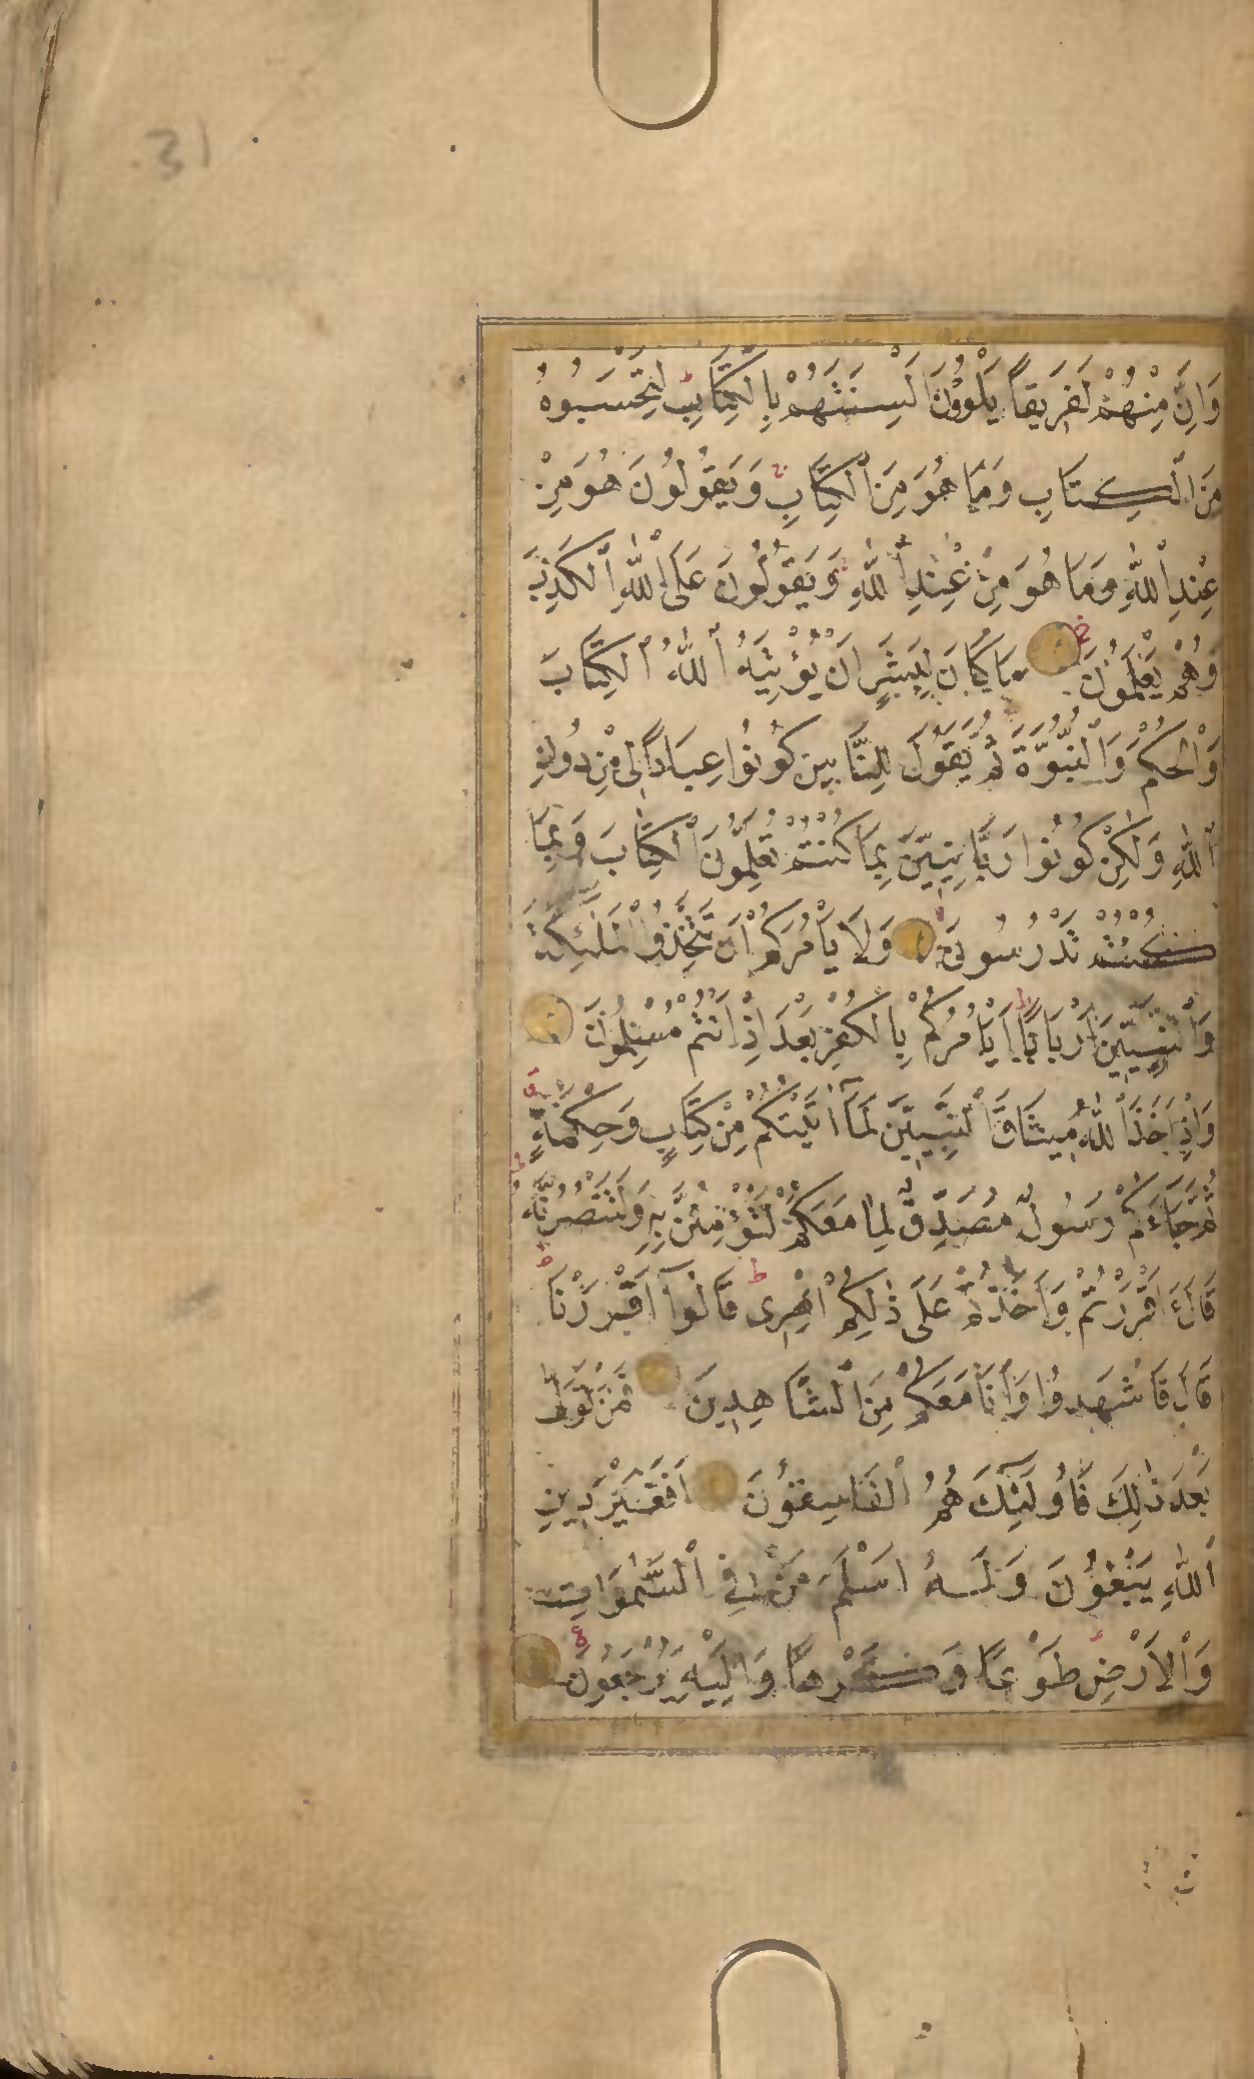 31
وَاِنَّ مِنْهُمْ لَفَرِيقاً يَلْوُونَ اَلْسِنَتَهُمْ بِالْكِتَابِ لِتَحْسَبُوهُ
مِنَ الْكِتَابِ وَمَا هُوَ مِنَ الْكِتَابِ وَيَقُولُونَ هُوَ مِنْ
عِنْدِ اللّٰهِ وَمَا هُوَ مِنْ عِنْدِ اللّٰهِ وَيَقُولُونَ عَلَى اللّٰهِ الْكَذِبَ
وَهُمْ يَعْلَمُونَ مَا كَانَ لِبَشَرٍ اَنْ يُؤْتِيَهُ اللّٰهُ الْكِتَابَ
وَالْحُكْمَ وَالنُّبُوَّةَ ثُمَّ يَقُولَ لِلنَّاسِ كُونُوا عِبَاداً لِى مِنْ دُونِ
اللّٰهِ وَلٰكِنْ كُونُوا رَبَّانِيِّينَ بِمَا كُنْتُمْ تُعَلِّمُونَ الْكِتَابَ وَبِمَا
كُنْتُمْ تَدْرُسُونَ وَلَا يَاْمُرَكُمْ اَنْ تَتَّخِذُوا الْمَلٰئِكَةَ
وَالنَّبِيِّينَ اَرْبَابًا اَيَاْمُرُكُمْ بِالْكُفْرِ بَعْدَ اِذْ اَنْتُمْ مُسْلِمُونَ
وَاِذْ اَخَذَ اللّٰهُ مِيثَاقَ النَّبِيِّينَ لَمَآ اٰتَيْتُكُمْ مِنْ كِتَابٍ وَحِكْمَةٍ
ثُمَّ جَاءَكُمْ رَسُولٌ مُصَدِّقٌ لِمَا مَعَكُمْ لَتُؤْمِنُنَّ بِهِ وَلَتَنْصُرُنَّهُ
قَالَ ءَاَقْرَرْتُمْ وَاَخَذْتُمْ عَلَى ذٰلِكُمْ اِصْرِى قَالُوآ اَقْرَرْنَا
قَالَ فَاشْهَدُوا وَاَنَا مَعَكُمْ مِنَ الشَّاهِدِينَ فَمَنْ تَوَلّٰى
بَعْدَ ذٰلِكَ فَاُولٰٓئِكَ هُمُ الْفَاسِقُونَ اَفَغَيْرَ دِينِ
اللّٰهِ يَبْغُونَ وَلَهُ اَسْلَمَ مَنْ فِى السَّمٰوَاتِ
وَالْاَرْضِ طَوْعًا وَكَرْهًا وَاِلَيْهِ يُرْجَعُونَ